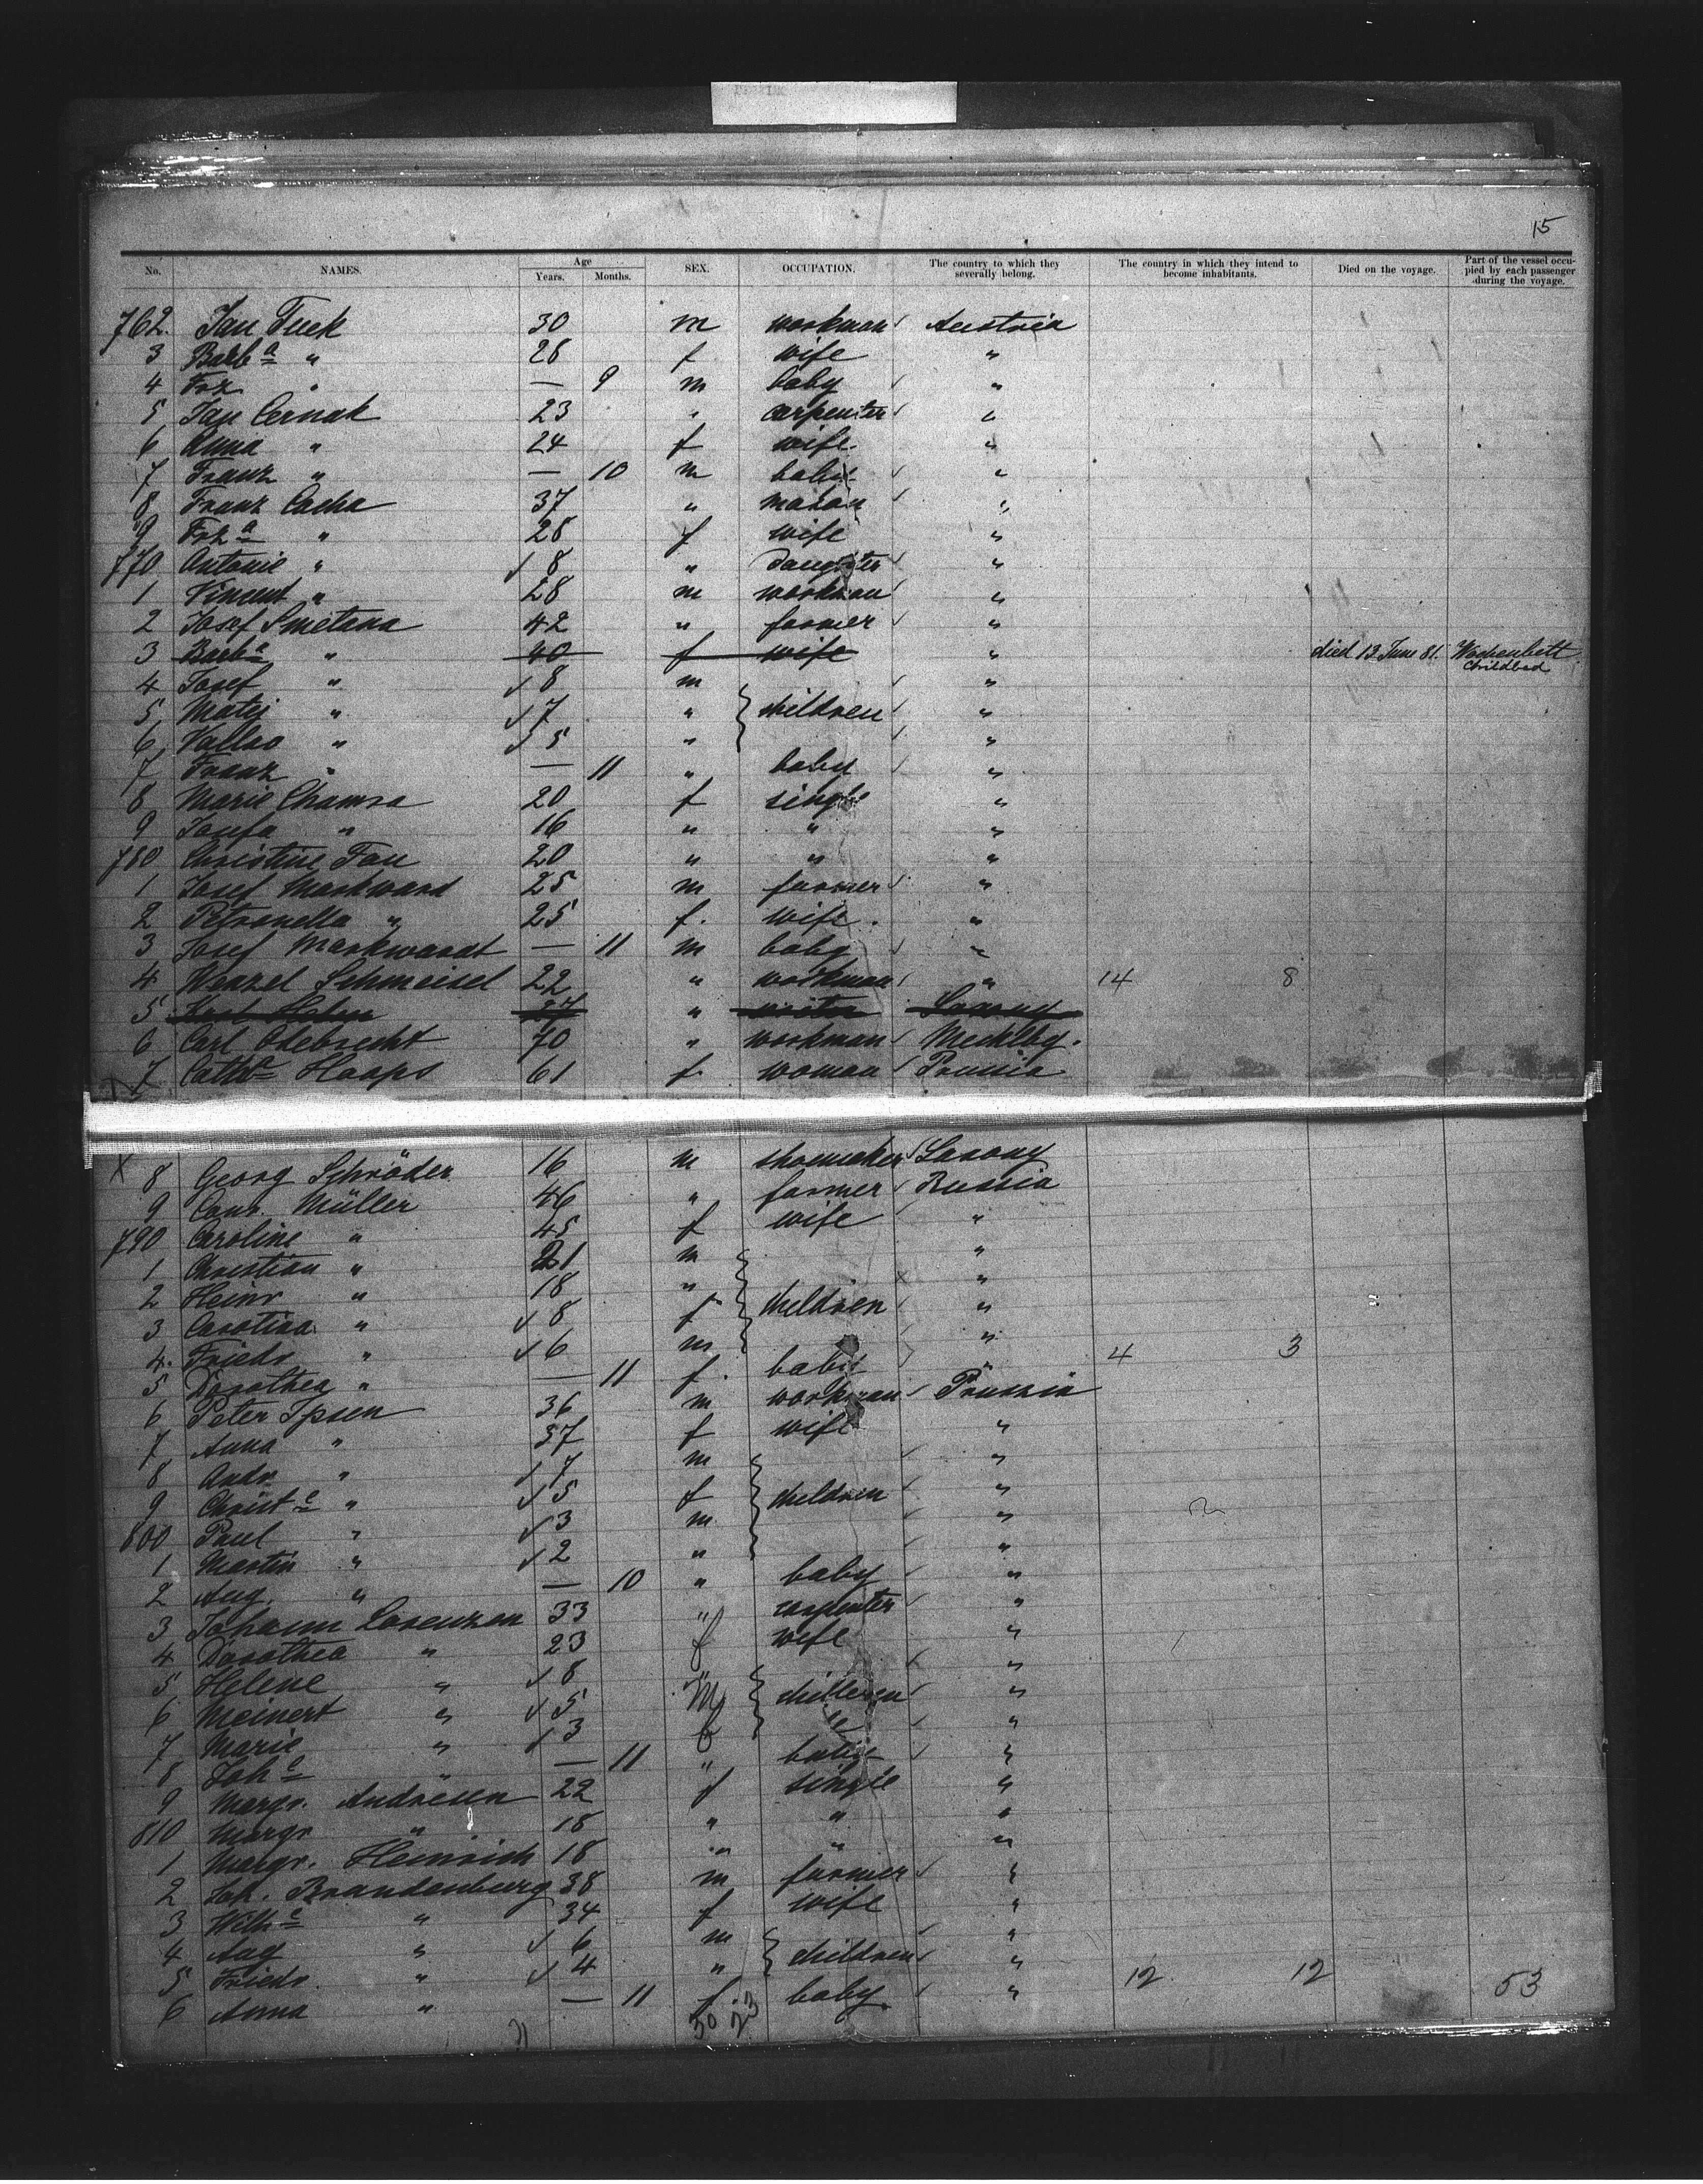 15
No. NAMES. Age Years. Months. SEX. OCCUPATION. The country to which they severally belong. The country in which they intend to become inhabitants. Died on the voyage. Part of the vessel occupied by each passenger during the voyage.
762. Jan Tuek 30 m workman Austria
3 Barba " 28 f wife "
4 Frz " — 9 m baby "
5 Jan Cernak 23 " carpenter "
6 Anna " 24 f wife "
7 Franz " — 10 m baby "
8 Franz Cacha 37 " mason "
9 Frza " 28 f wife "
770 Antonie " 8 " daughter "
1 Vincent " 28 m workman "
2 Josef Smetana 42 " farmer "
3 Barba " 40 f wife " died 13 June 81. Wochenbett Childbed
4 Josef " 8 m "
5 Matej " 7 " children "
6 " 5 " "
7 Franz " — 11 " baby "
8 Marie Chamra 20 f single "
9 Josefa " 16 " " "
780 Christine Fau 20 " " "
1 Josef Markward 25 m farmer "
2 Petronella " 25 f. wife "
3 Josef Markwardt — 11 m baby "
4 Wenzel Schmeisel 22 " workman " 14 8
5 27 "
6 Carl Odebrecht 70 " workman Mecklbg.
7 Catha Haaps 61 f woman Prussia
8 Georg Schröder 16 m shoemaker Saxony
9 Conr. Müller 46 " farmer Russia
790 Caroline " 45 f wife "
1 Christian " 21 m "
2 Heinr " 18 " "
3 Carolina " 8 f children "
4. Friedr " 6 m " 4 3
5 Dorothea " — 11 f. baby "
6 Peter Ipsen 36 m workman Prussia
7 Anna " 37 f wife "
8 Andr " 7 m "
9 Christe " 5 f children "
800 Paul " 3 m "
1 Martin " 2 " "
2 Aug. " — 10 " baby "
3 Johann Lorenzen 33 " carpenter "
4 Dorothea " 23 f wife "
5 Helene " 8 " "
6 Meinert " 5 M children "
7 Marie " 3 f "
8 Johe " — 11 " baby "
9 Margr. Andresen 22 f single "
810 Margr " 18 " " "
1 Margr. Heinrich 18 " " "
2 Joh. Brandenburg 38 m farmer "
3 Wilhe " 34 f wife "
4 Aug " 6 m "
5 Friedr. " 4 " children " 12 12 53
6 Anna " — 11 f. baby. "
30 23